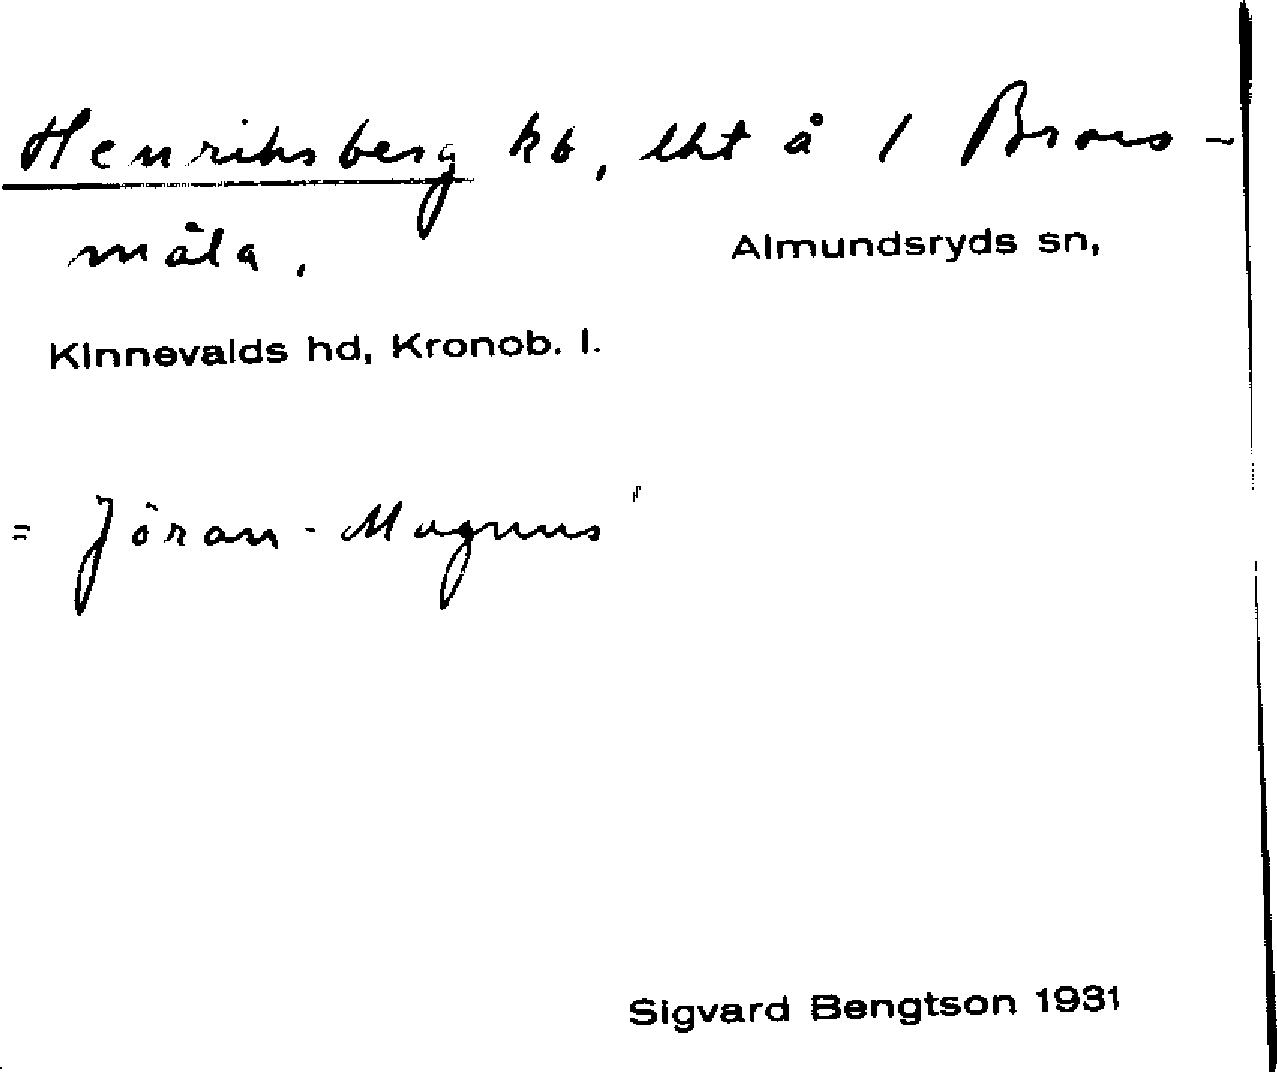 Henriksberg kb, lht å 1 Broxs-
måla, Almundsryds sn,
Kinnevalds hd, Kronob. l.
= Jöran-Magnus"
Sigvard Bengtson 1931